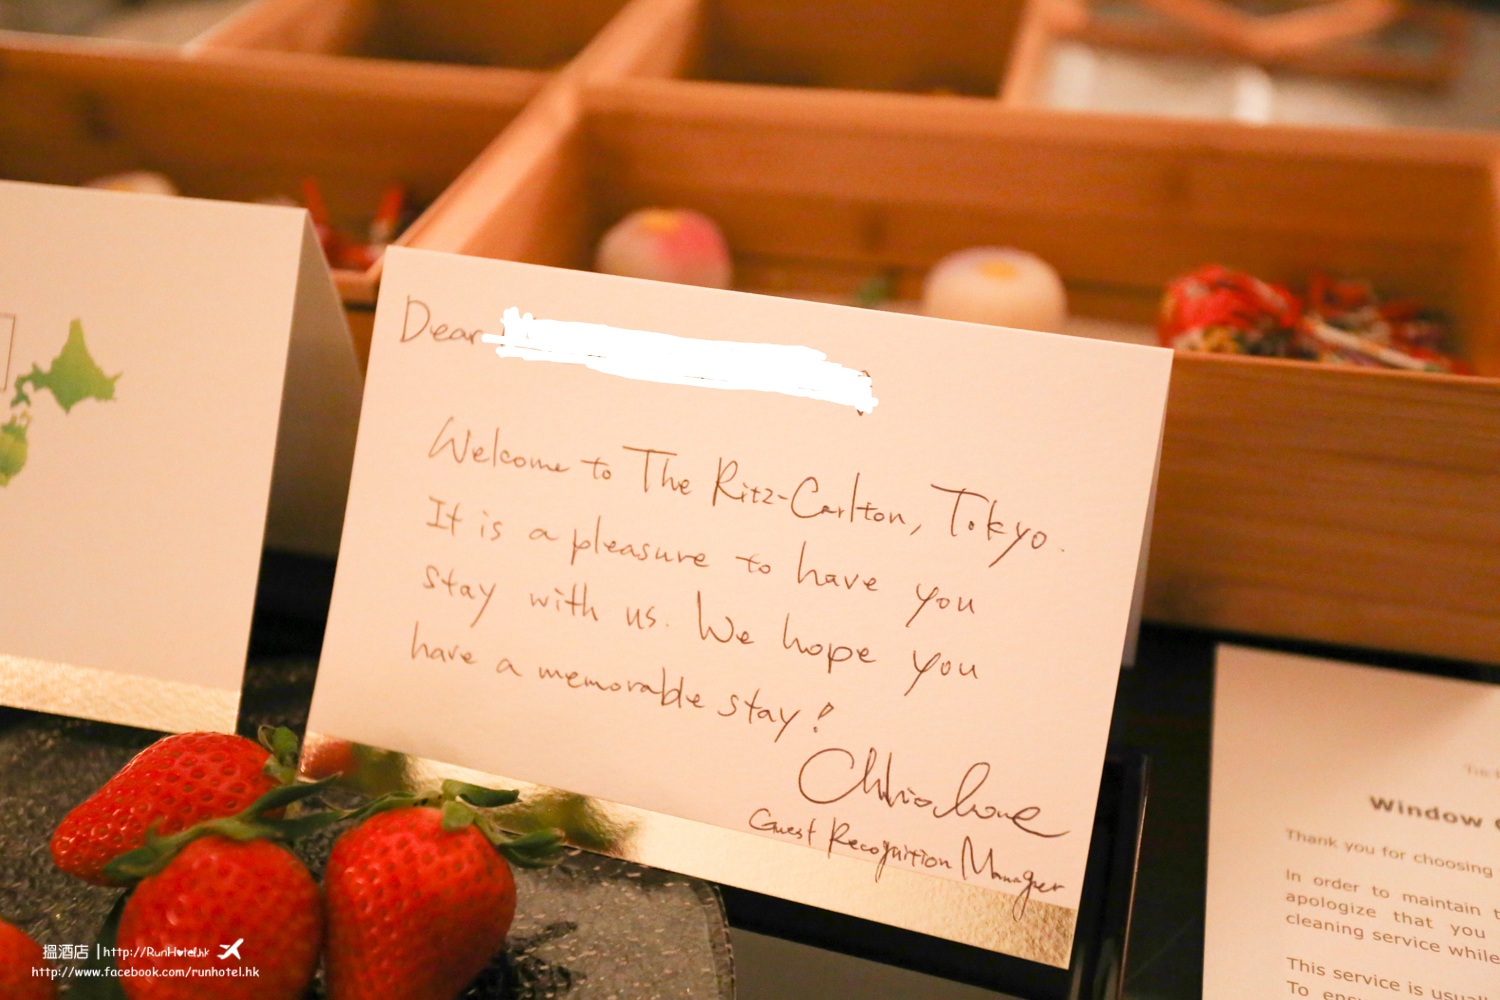 Dear
Welcome to The Ritz-Carlton, Tokyo.
It is a pleasure to have you
stay with us. We hope you
have a memorable stay!
Guest Recognition Manager
Window
Thank you for choosing
In order to maintain
apologize that you
cleaning service while
This service is
To
搵酒店 | http://RunHotel.hk
http://www.facebook.com/runhotel.hk